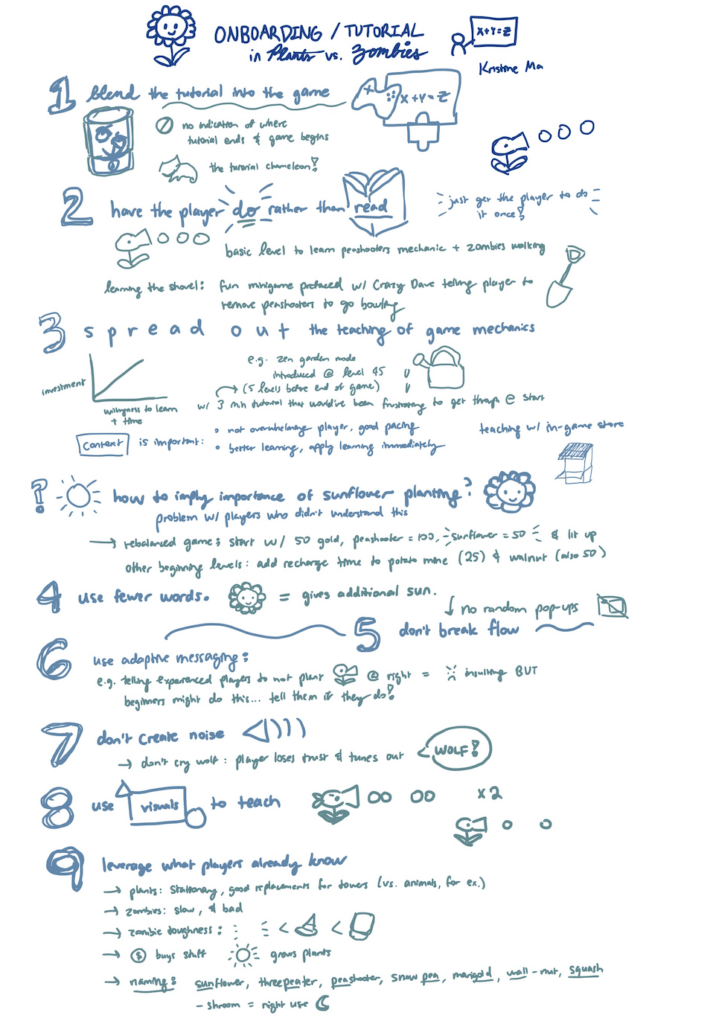 ONBOARDING / TUTORIAL
in Plants vs. Zombies
X+Y=Z
Kristine Ma
1 blend the tutorial into the game
X+Y=Z
no indication of where
tutorial ends & game begins
the tutorial chameleon!
2 have the player do rather than read
just get the player to do
it once!
basic level to learn peashooters mechanic + zombies walking
learning the shovel: fun minigame prefaced w/ Crazy Dave telling player to
remove peashooters to go bowling
3 spread out the teaching of game mechanics
investment
willingness to learn
+ time
e.g. zen garden mode
introduced @ level 45
(5 levels before end of game)
w/ 3 min tutorial that would've been frustrating to get thru @ start
Content is important:
• not overwhelming player, good pacing
• better learning, apply learning immediately
teaching w/ in-game store
! how to imply importance of sunflower planting?
problem w/ players who didn't understand this
→ rebalanced game: start w/ 50 gold, peashooter = 100, sunflower = 50 & lit up
other beginning levels: add recharge time to potato mine (25) & walnut (also 50)
4 use fewer words.
= gives additional sun.
5 don't break flow
no random pop-ups
6 use adaptive messaging:
e.g. telling experienced players to not plant @ right = insulting BUT
beginners might do this... tell them if they do!
7 don't create noise
→ don't cry wolf: player loses trust & tunes out
WOLF!
8 use visuals to teach
x2
9 leverage what players already know
→ plants: stationary, good replacements for towers (vs. animals, for ex.)
→ zombies: slow, & bad
→ zombie toughness: < <
→ $ buys stuff grows plants
→ naming: sunflower, threepeater, peashooter, snow pea, marigold, wall-nut, squash
-shroom = night use